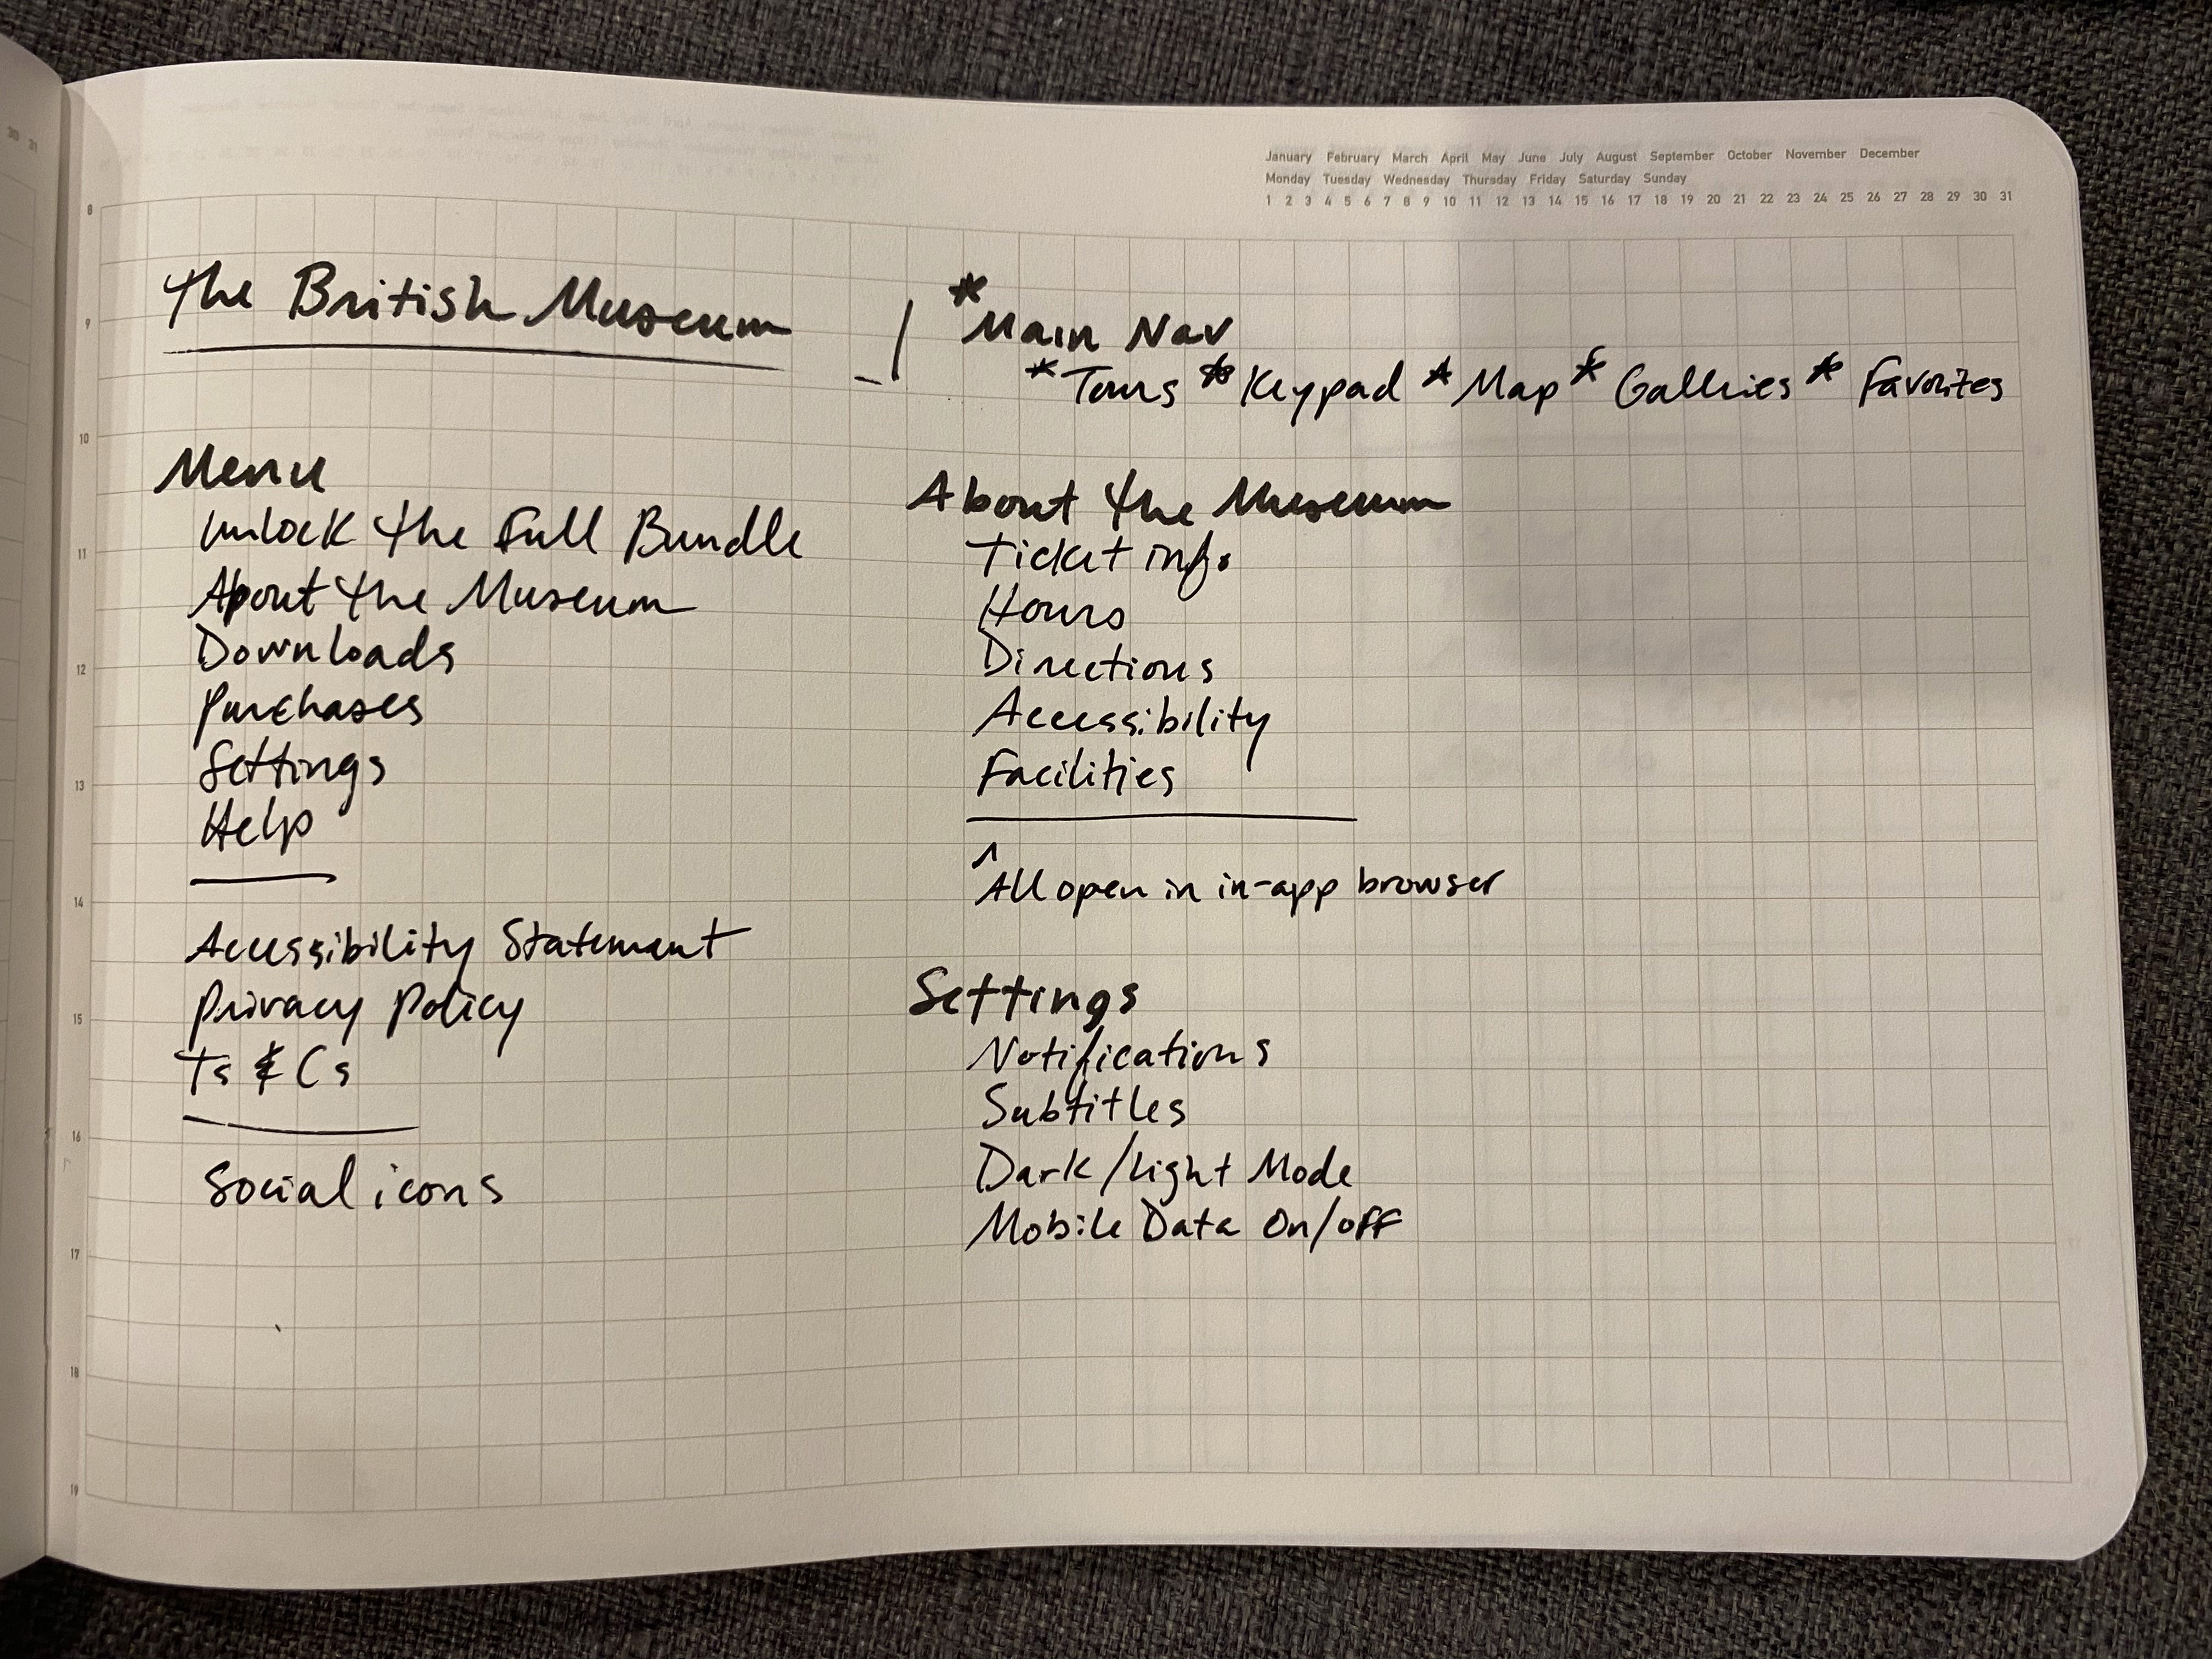 January February March April May June July August September October November December
Monday Tuesday Wednesday Thursday Friday Saturday Sunday
1 2 3 4 5 6 7 8 9 10 11 12 13 14 15 16 17 18 19 20 21 22 23 24 25 26 27 28 29 30 31
30 31
8
9
10
11
12
13
14
15
16
17
18
19
The British Museum
* Main Nav
* Tours * Keypad * Map * Galleries * Favorites
Menu
Unlock the Full Bundle
About the Museum
Downloads
Purchases
Settings
Help
Accessibility Statement
Privacy Policy
Ts & Cs
Social icons
About the Museum
Ticket info.
Hours
Directions
Accessibility
Facilities
^
All open in in-app browser
Settings
Notifications
Subtitles
Dark/Light Mode
Mobile Data On/off